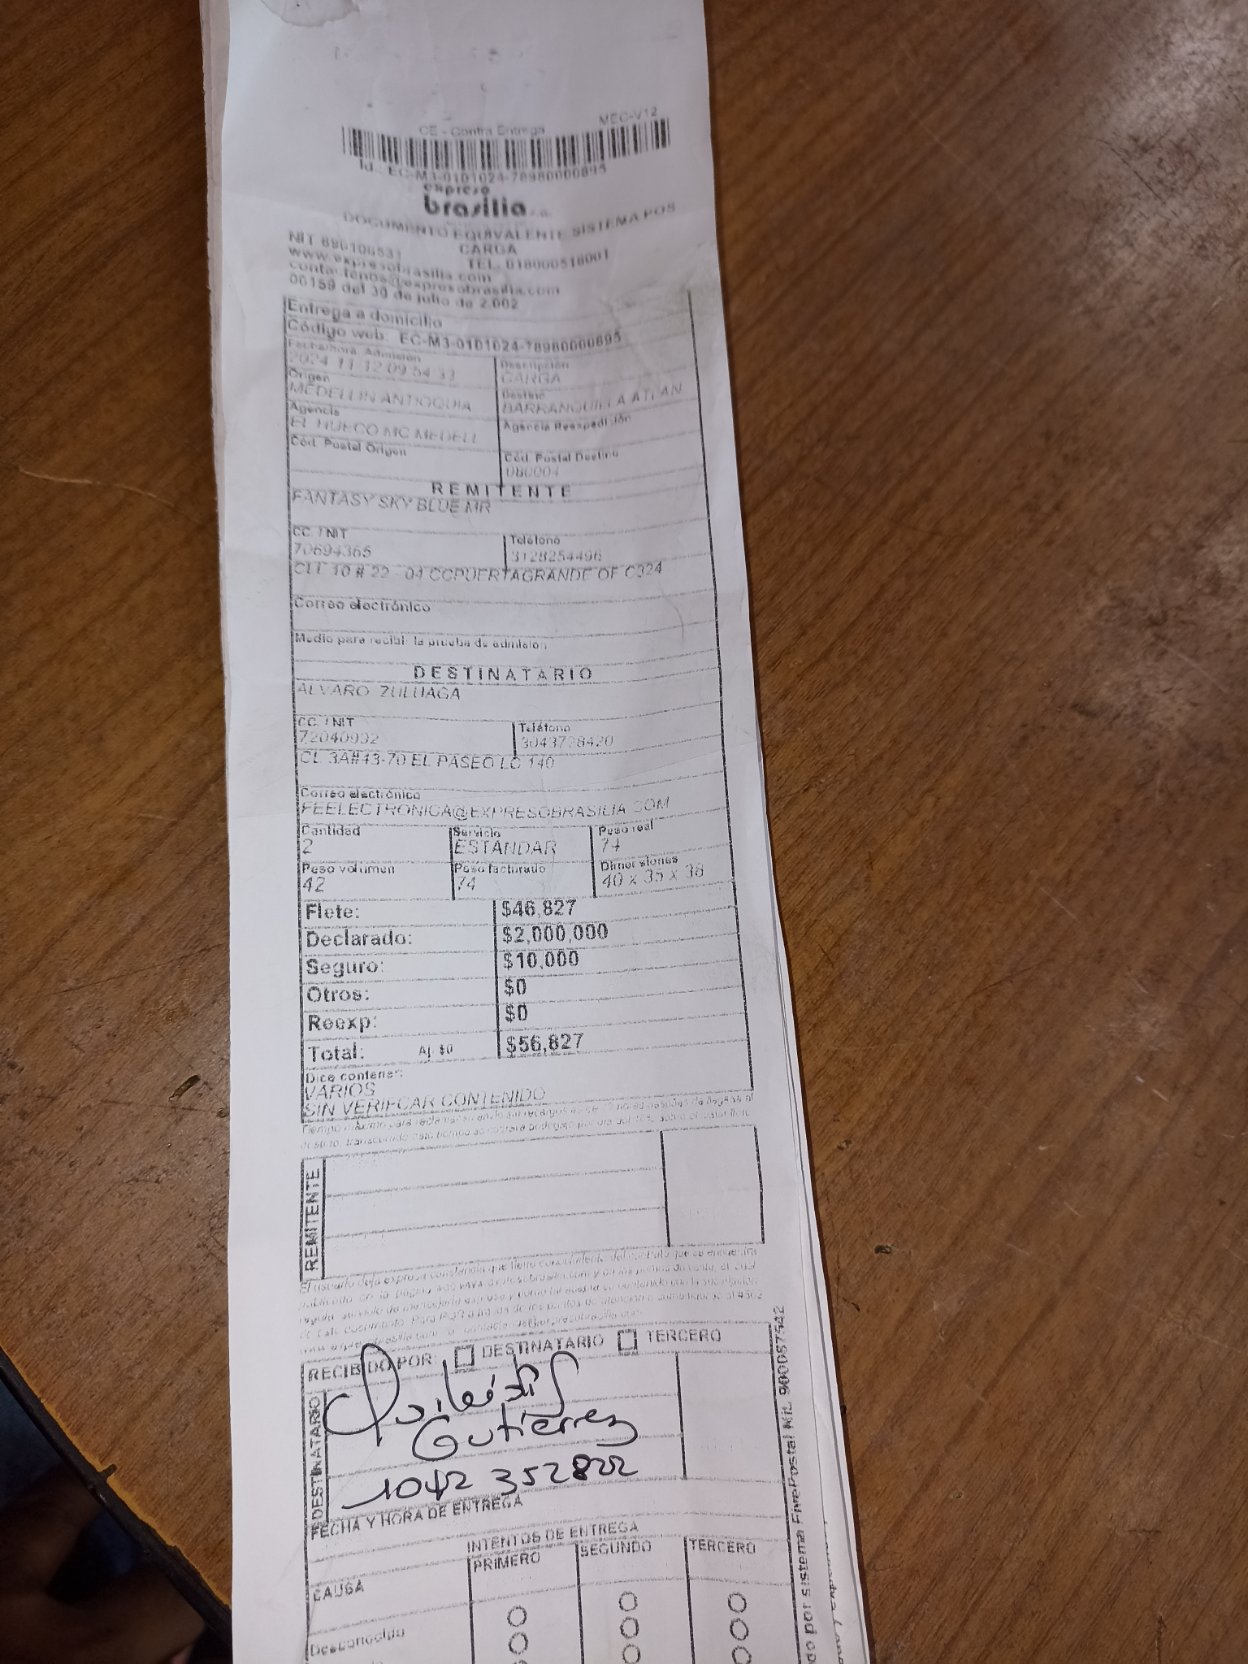 CE - Contra Entrega MEC-V12
Id.: EC-M3-0101024-78980000895
expreso
brasilia s.a.
DOCUMENTO EQUIVALENTE SISTEMA POS
CARGA
NIT 890106531 TEL. 018000518001
www.expresobrasilia.com
contactenos@expresobrasilia.com
00159 del 30 de julio de 2.002
Entrega a domicilio
Código web: EC-M3-0101024-78980000895
Fecha/hora Admisión Descripción
2024-11-12 09:54:33 CARGA
Origen Destino
MEDELLIN ANTIOQUIA BARRANQUILLA ATLAN
Agencia Agencia Reexpedición
EL HUECO MC MEDELL
Cód. Postal Origen Cód. Postal Destino
080004
REMITENTE
FANTASY SKY BLUE MR
CC. / NIT Teléfono
70694365 3128254496
CLL 10 # 22 - 04 CCPUERTAGRANDE OF C324
Correo electrónico
Medio para recibir la prueba de admisión
DESTINATARIO
ALVARO ZULUAGA
CC. / NIT Teléfono
72040932 3043728420
CL 3A#43-70 EL PASEO LC 140
Correo electrónico
FEELECTRONICA@EXPRESOBRASILIA.COM
Cantidad Servicio Peso real
2 ESTÁNDAR 74
Peso volumen Peso facturado Dimensiones
42 74 40 x 35 x 38
Flete: $46,827
Declarado: $2,000,000
Seguro: $10,000
Otros: $0
Reexp: $0
Total: Aj. $0 $56,827
Dice contener:
VARIOS
SIN VERIFCAR CONTENIDO
REMITENTE
RECIBIDO POR: DESTINATARIO TERCERO
DESTINATARIO
Gutierrez
1042 352822
FECHA Y HORA DE ENTREGA
INTENTOS DE ENTREGA
CAUSA PRIMERO SEGUNDO TERCERO
Desconocido
do por sistema FivePostal Nit. 900087542